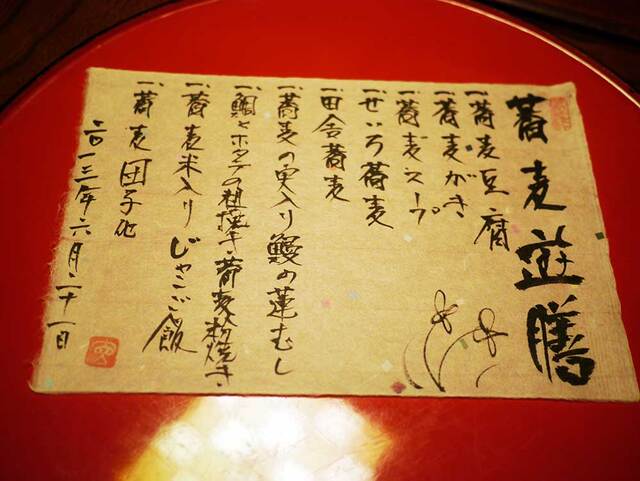 蕎麦遊膳
一、蕎麦豆腐
一、蕎麦がき
一、蕎麦スープ
一、せいろ蕎麦
一、田舎蕎麦
一、蕎麦の実入り鰻の蓮むし
一、鯛とホタテの粗挽き蕎麦粉焼き
一、蕎麦米入りじゃこご飯
一、蕎麦団子他
二〇一三年六月二十一日